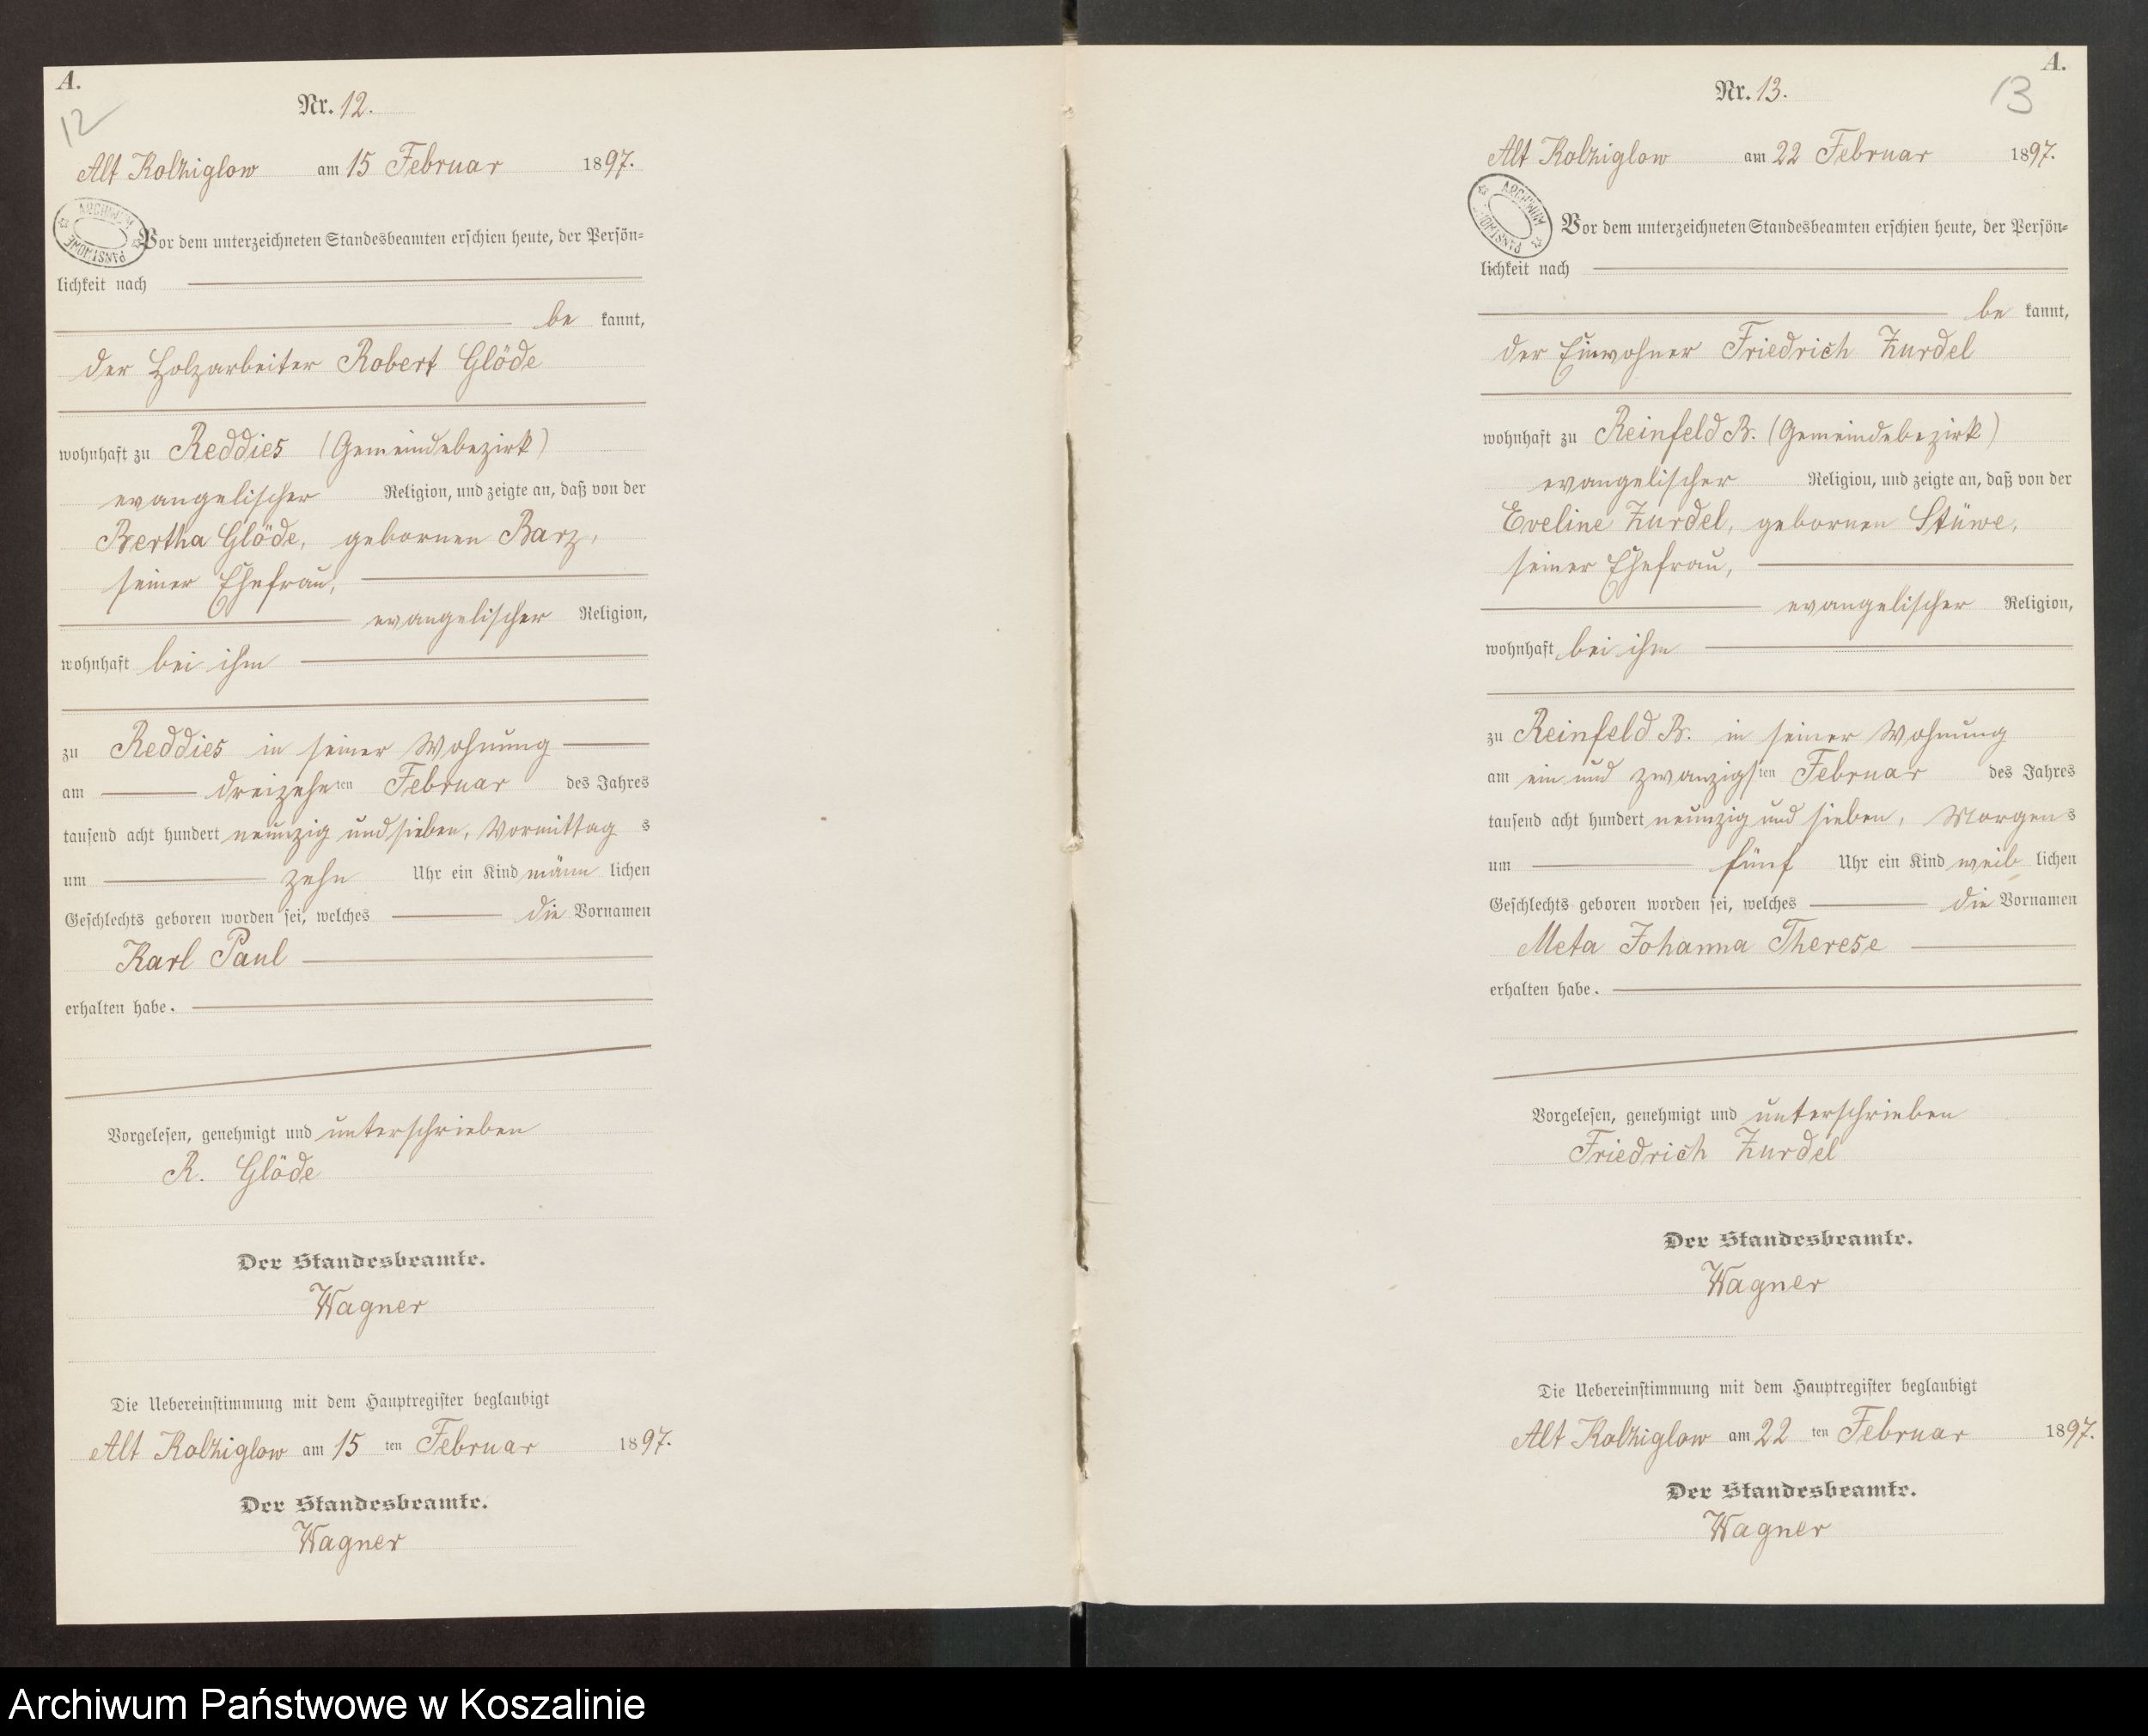 A.
12
Nr. 12.
Alt Kolziglow am 15 Februar 1897.
ARCHIWUM PAŃSTWOWE
Vor dem unterzeichneten Standesbeamten erschien heute, der Persön=
lichkeit nach
be kannt,
der Holzarbeiter Robert Glöde
wohnhaft zu Reddies (Gemeindebezirk)
evangelischer Religion, und zeigte an, daß von der
Bertha Glöde, gebornen Barz,
seiner Ehefrau,
evangelischer Religion,
wohnhaft bei ihm
zu Reddies in seiner Wohnung
am dreizehnten Februar des Jahres
tausend acht hundert neunzig und sieben, Vormittag s
um zehn Uhr ein Kind männ lichen
Geschlechts geboren worden sei, welches die Vornamen
Karl Paul
erhalten habe.
Vorgelesen, genehmigt und unterschrieben
R. Glöde
Der Standesbeamte.
Wagner
Die Uebereinstimmung mit dem Hauptregister beglaubigt
Alt Kolziglow am 15 ten Februar 1897.
Der Standesbeamte.
Wagner
A.
13
Nr. 13.
Alt Kolziglow am 22 Februar 1897.
ARCHIWUM PAŃSTWOWE
Vor dem unterzeichneten Standesbeamten erschien heute, der Persön=
lichkeit nach
be kannt,
der Einwohner Friedrich Zurdel
wohnhaft zu Reinfeld B. (Gemeindebezirk)
evangelischer Religion, und zeigte an, daß von der
Eveline Zurdel, gebornen Stüwe,
seiner Ehefrau,
evangelischer Religion,
wohnhaft bei ihm
zu Reinfeld B. in seiner Wohnung
am ein und zwanzigsten Februar des Jahres
tausend acht hundert neunzig und sieben, Morgen s
um fünf Uhr ein Kind weib lichen
Geschlechts geboren worden sei, welches die Vornamen
Meta Johanna Therese
erhalten habe.
Vorgelesen, genehmigt und unterschrieben
Friedrich Zurdel
Der Standesbeamte.
Wagner
Die Uebereinstimmung mit dem Hauptregister beglaubigt
Alt Kolziglow am 22 ten Februar 1897.
Der Standesbeamte.
Wagner
Archiwum Państwowe w Koszalinie